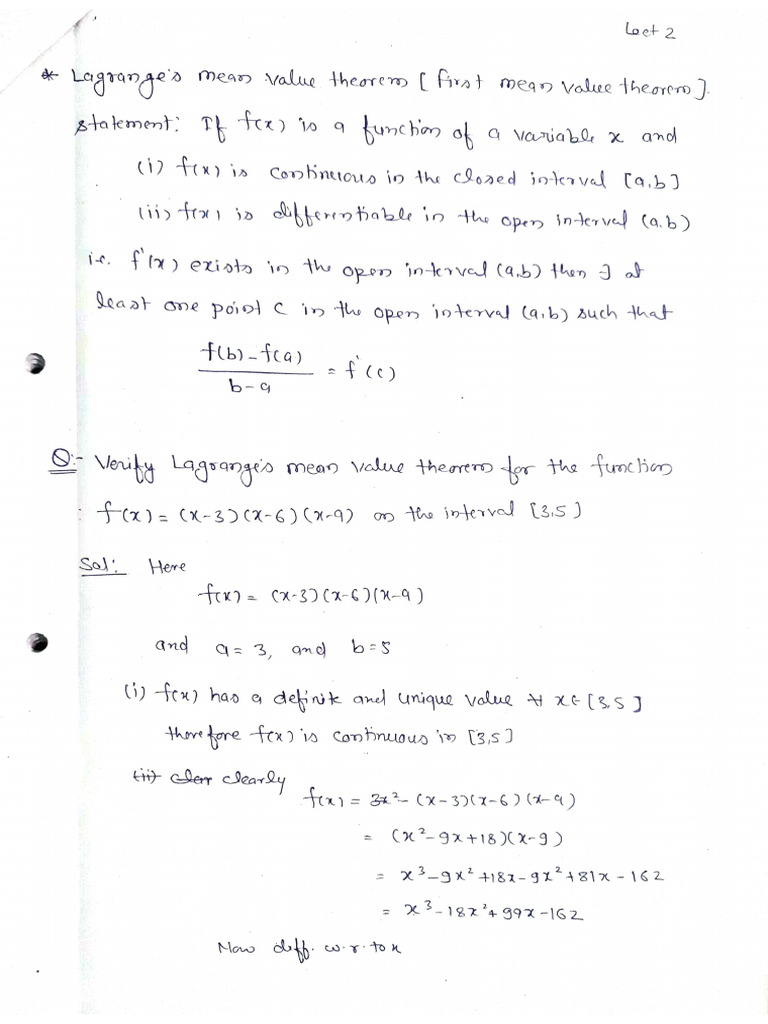 Lect 2
* Lagrange's mean value theorem [first mean value theorem].
statement: If f(x) is a function of a variable x and
(i) f(x) is continuous in the closed interval [a,b]
(ii) f(x) is differentiable in the open interval (a,b)
i.e. f'(x) exists in the open interval (a,b) then ∃ at
least one point c in the open interval (a,b) such that
f(b)-f(a)
b-a
= f'(c)
Q:- Verify Lagrange's mean value theorem for the function
: f(x) = (x-3)(x-6)(x-9) on the interval [3,5]
Sol: Here
f(x) = (x-3)(x-6)(x-9)
and a=3, and b=5
(i) f(x) has a definite and unique value ∀ x∈[3,5]
therefore f(x) is continuous in [3,5]
(ii) clear clearly
f(x) = 3x²- (x-3)(x-6)(x-9)
= (x²-9x+18)(x-9)
= x³-9x²+18x-9x²+81x-162
= x³-18x²+99x-162
Now diff. w.r.to x